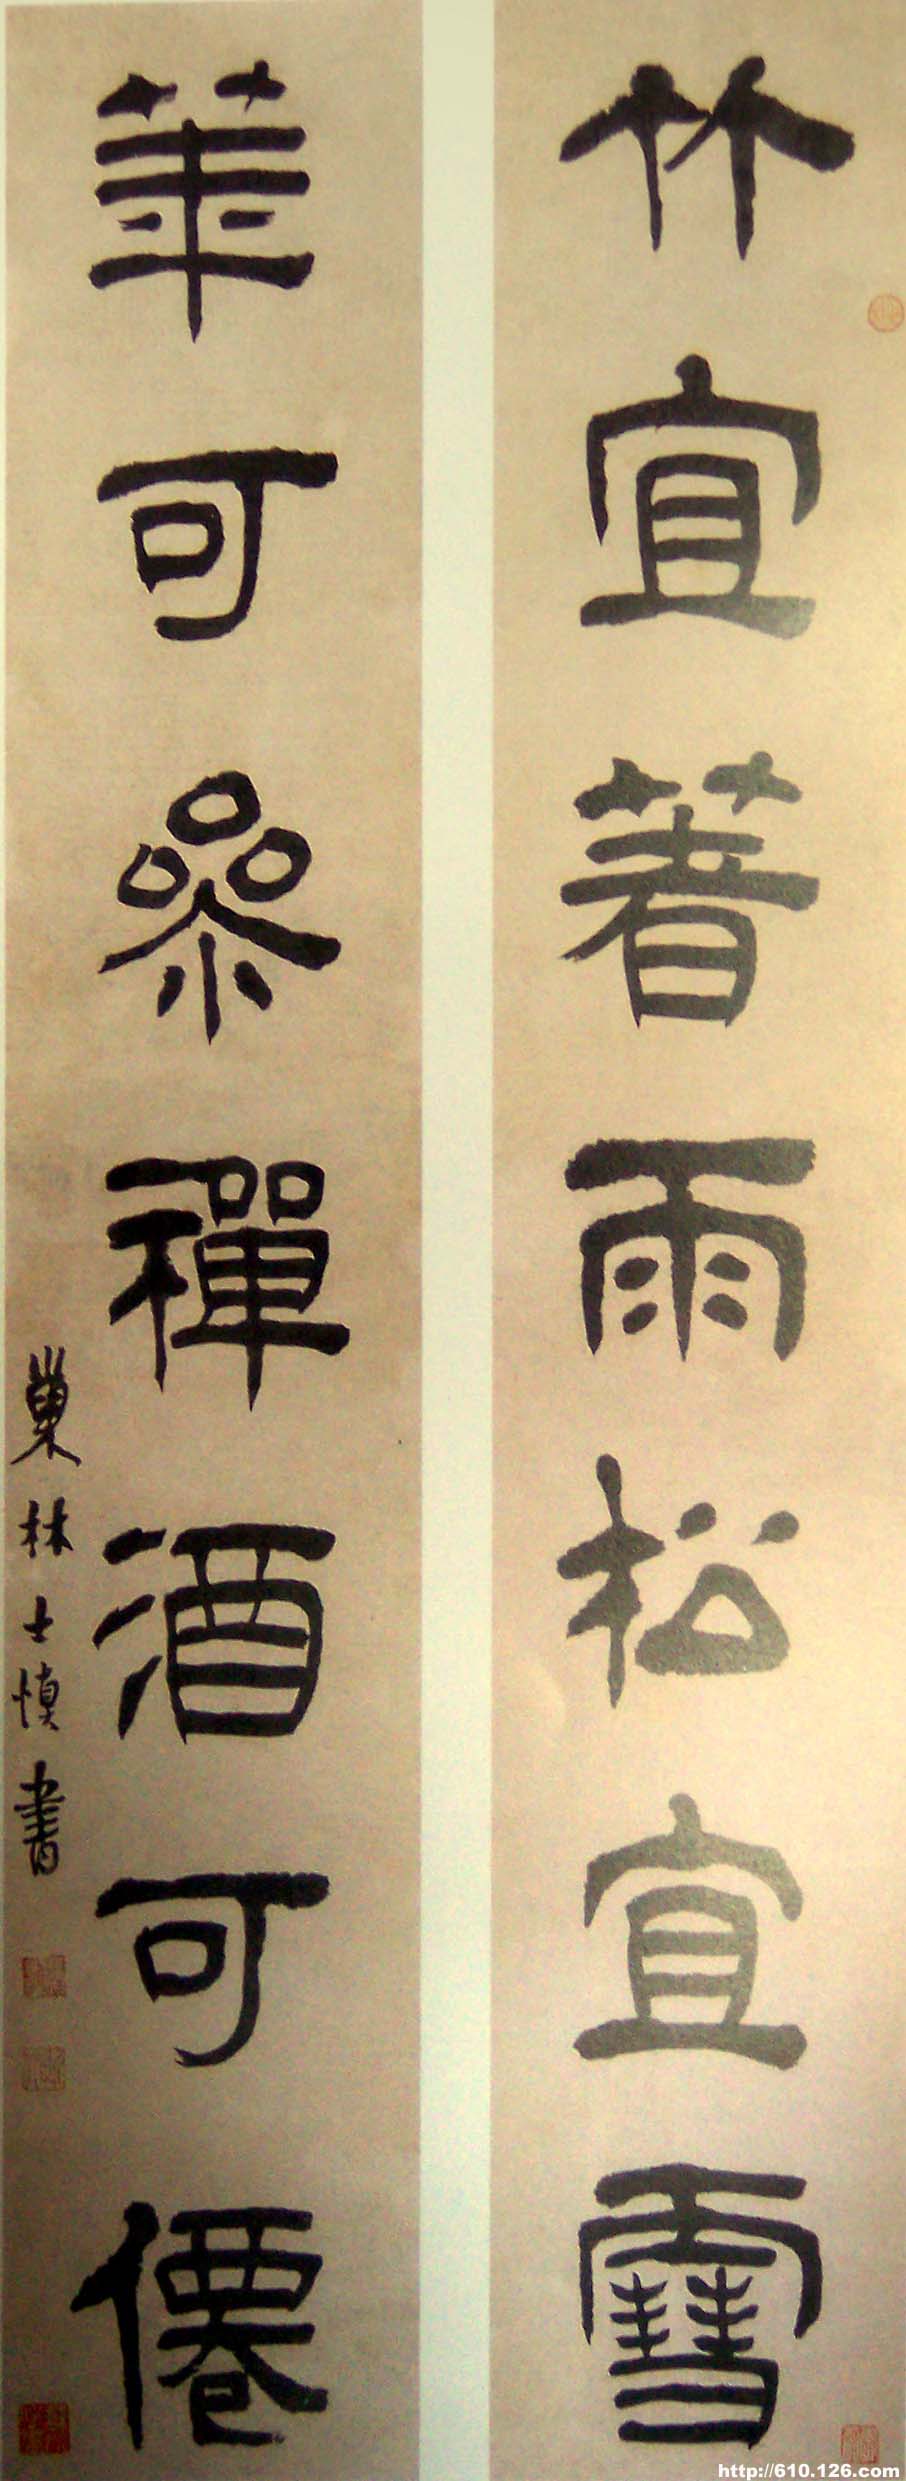 竹宜著雨松宜雪
華可參禪酒可僊
巢林士慎書
http://610.126.com